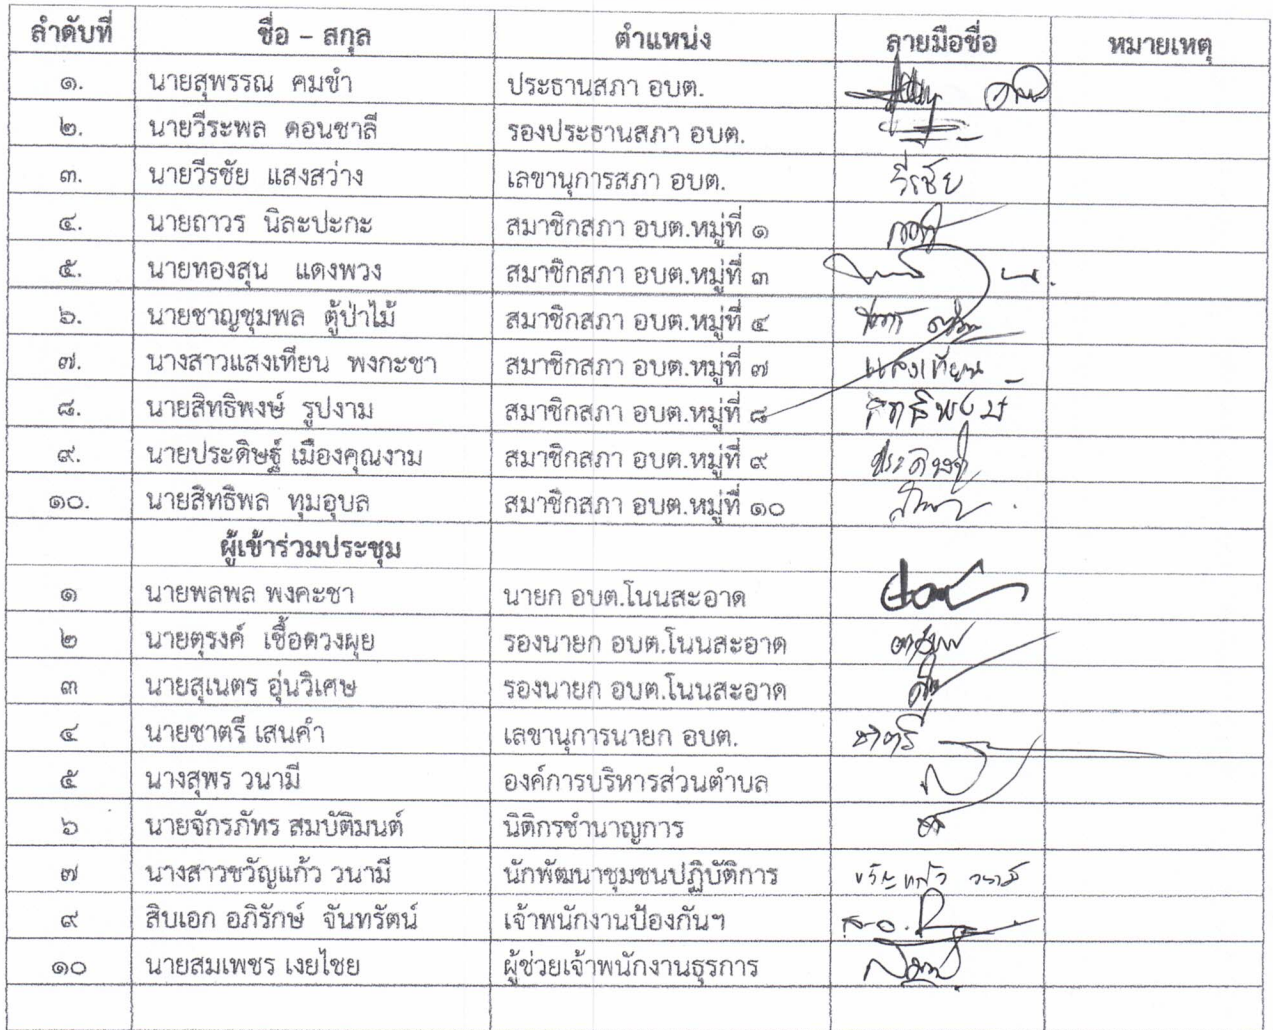 ลำดับที่ ชื่อ – สกุล ตำแหน่ง ลายมือชื่อ หมายเหตุ
๑. นายสุพรรณ คมขำ ประธานสภา อบต.
๒. นายวีระพล ดอนชาลี รองประธานสภา อบต.
๓. นายวีรชัย แสงสว่าง เลขานุการสภา อบต. วีรชัย
๔. นายถาวร นิละปะกะ สมาชิกสภา อบต.หมู่ที่ ๑
๕. นายทองสุน แดงพวง สมาชิกสภา อบต.หมู่ที่ ๓
๖. นายชาญชุมพล ตู้ป่าไม้ สมาชิกสภา อบต.หมู่ที่ ๔
๗. นางสาวแสงเทียน พงกะชา สมาชิกสภา อบต.หมู่ที่ ๗ แสงเทียน
๘. นายสิทธิพงษ์ รูปงาม สมาชิกสภา อบต.หมู่ที่ ๘ สิทธิพงษ์
๙. นายประดิษฐ์ เมืองคุณงาม สมาชิกสภา อบต.หมู่ที่ ๙ ประดิษฐ์
๑๐. นายสิทธิพล ทุมอุบล สมาชิกสภา อบต.หมู่ที่ ๑๐
ผู้เข้าร่วมประชุม
๑ นายพลพล พงคะชา นายก อบต.โนนสะอาด
๒ นายตุรงค์ เชื้อดวงผุย รองนายก อบต.โนนสะอาด
๓ นายสุเนตร อุ่นวิเศษ รองนายก อบต.โนนสะอาด
๔ นายชาตรี เสนคำ เลขานุการนายก อบต. ชาตรี
๕ นางสุพร วนามี องค์การบริหารส่วนตำบล
๖ นายจักรภัทร สมบัติมนต์ นิติกรชำนาญการ
๗ นางสาวขวัญแก้ว วนามี นักพัฒนาชุมชนปฏิบัติการ ขวัญแก้ว วนามี
๙ สิบเอก อภิรักษ์ จันทรัตน์ เจ้าพนักงานป้องกันฯ ส.อ.
๑๐ นายสมเพชร เงยไชย ผู้ช่วยเจ้าพนักงานธุรการ